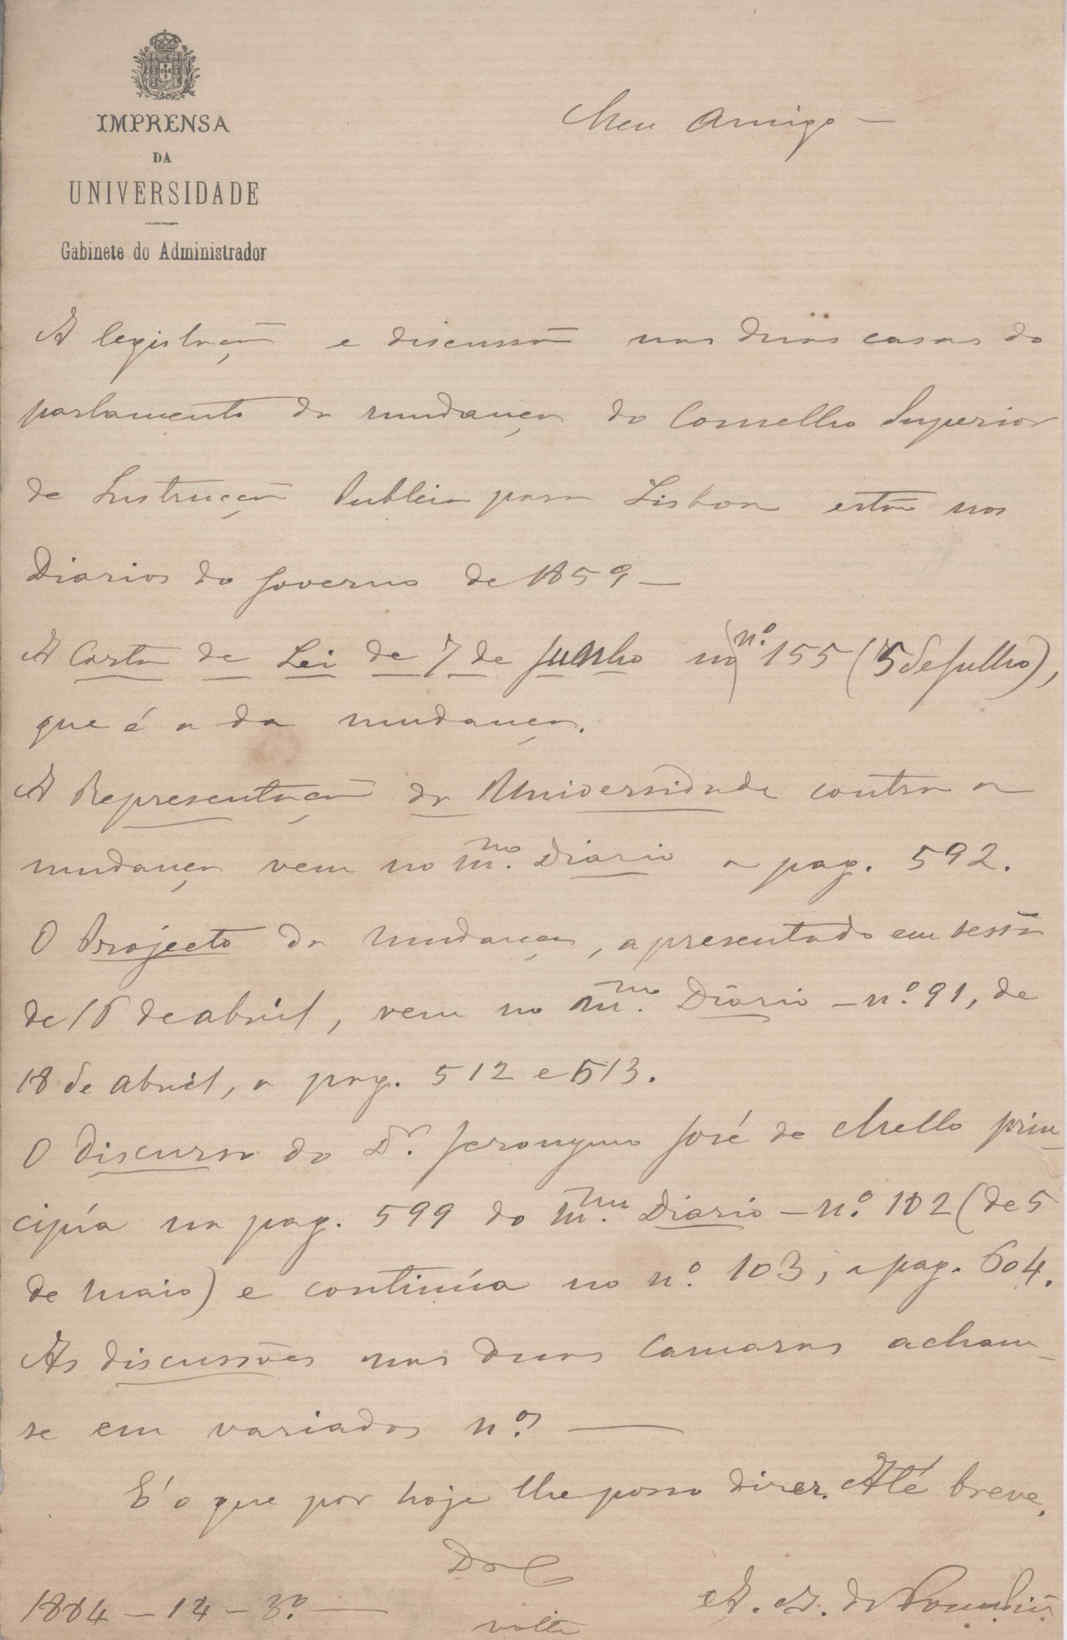 IMPRENSA
DA
UNIVERSIDADE
Gabinete do Administrador
Meu Amigo —
A legislação e discussão nas duas casas do
parlamento da mudança do Conselho Superior
de Instrucção Publica para Lisboa estão nos
Diarios do Governo de 1859 —
A Carta de Lei de 7 de Junho no n.º 155 (5 de Julho),
que é a da mudança.
A Representação da Universidade contra a
mudança vem no m.mo Diario a pag. 592.
O Projecto da mudança, apresentado em sessão
de 16 de abril, vem no m.mo Diario — n.º 91, de
18 de abril, a pag. 512 e 513.
O Discurso do Dr. Jeronymo José de Mello prin-
cipía na pag. 599 do m.mo Diario — n.º 102 (de 5
de maio) e continúa no n.º 103, a pag. 604.
As discussões nas duas Camaras acham-
se em variados n.os —
É o que por hoje lhe posso dizer. Até breve.
Do C
1884 — 14 — 3.º —
A. S. da
volte